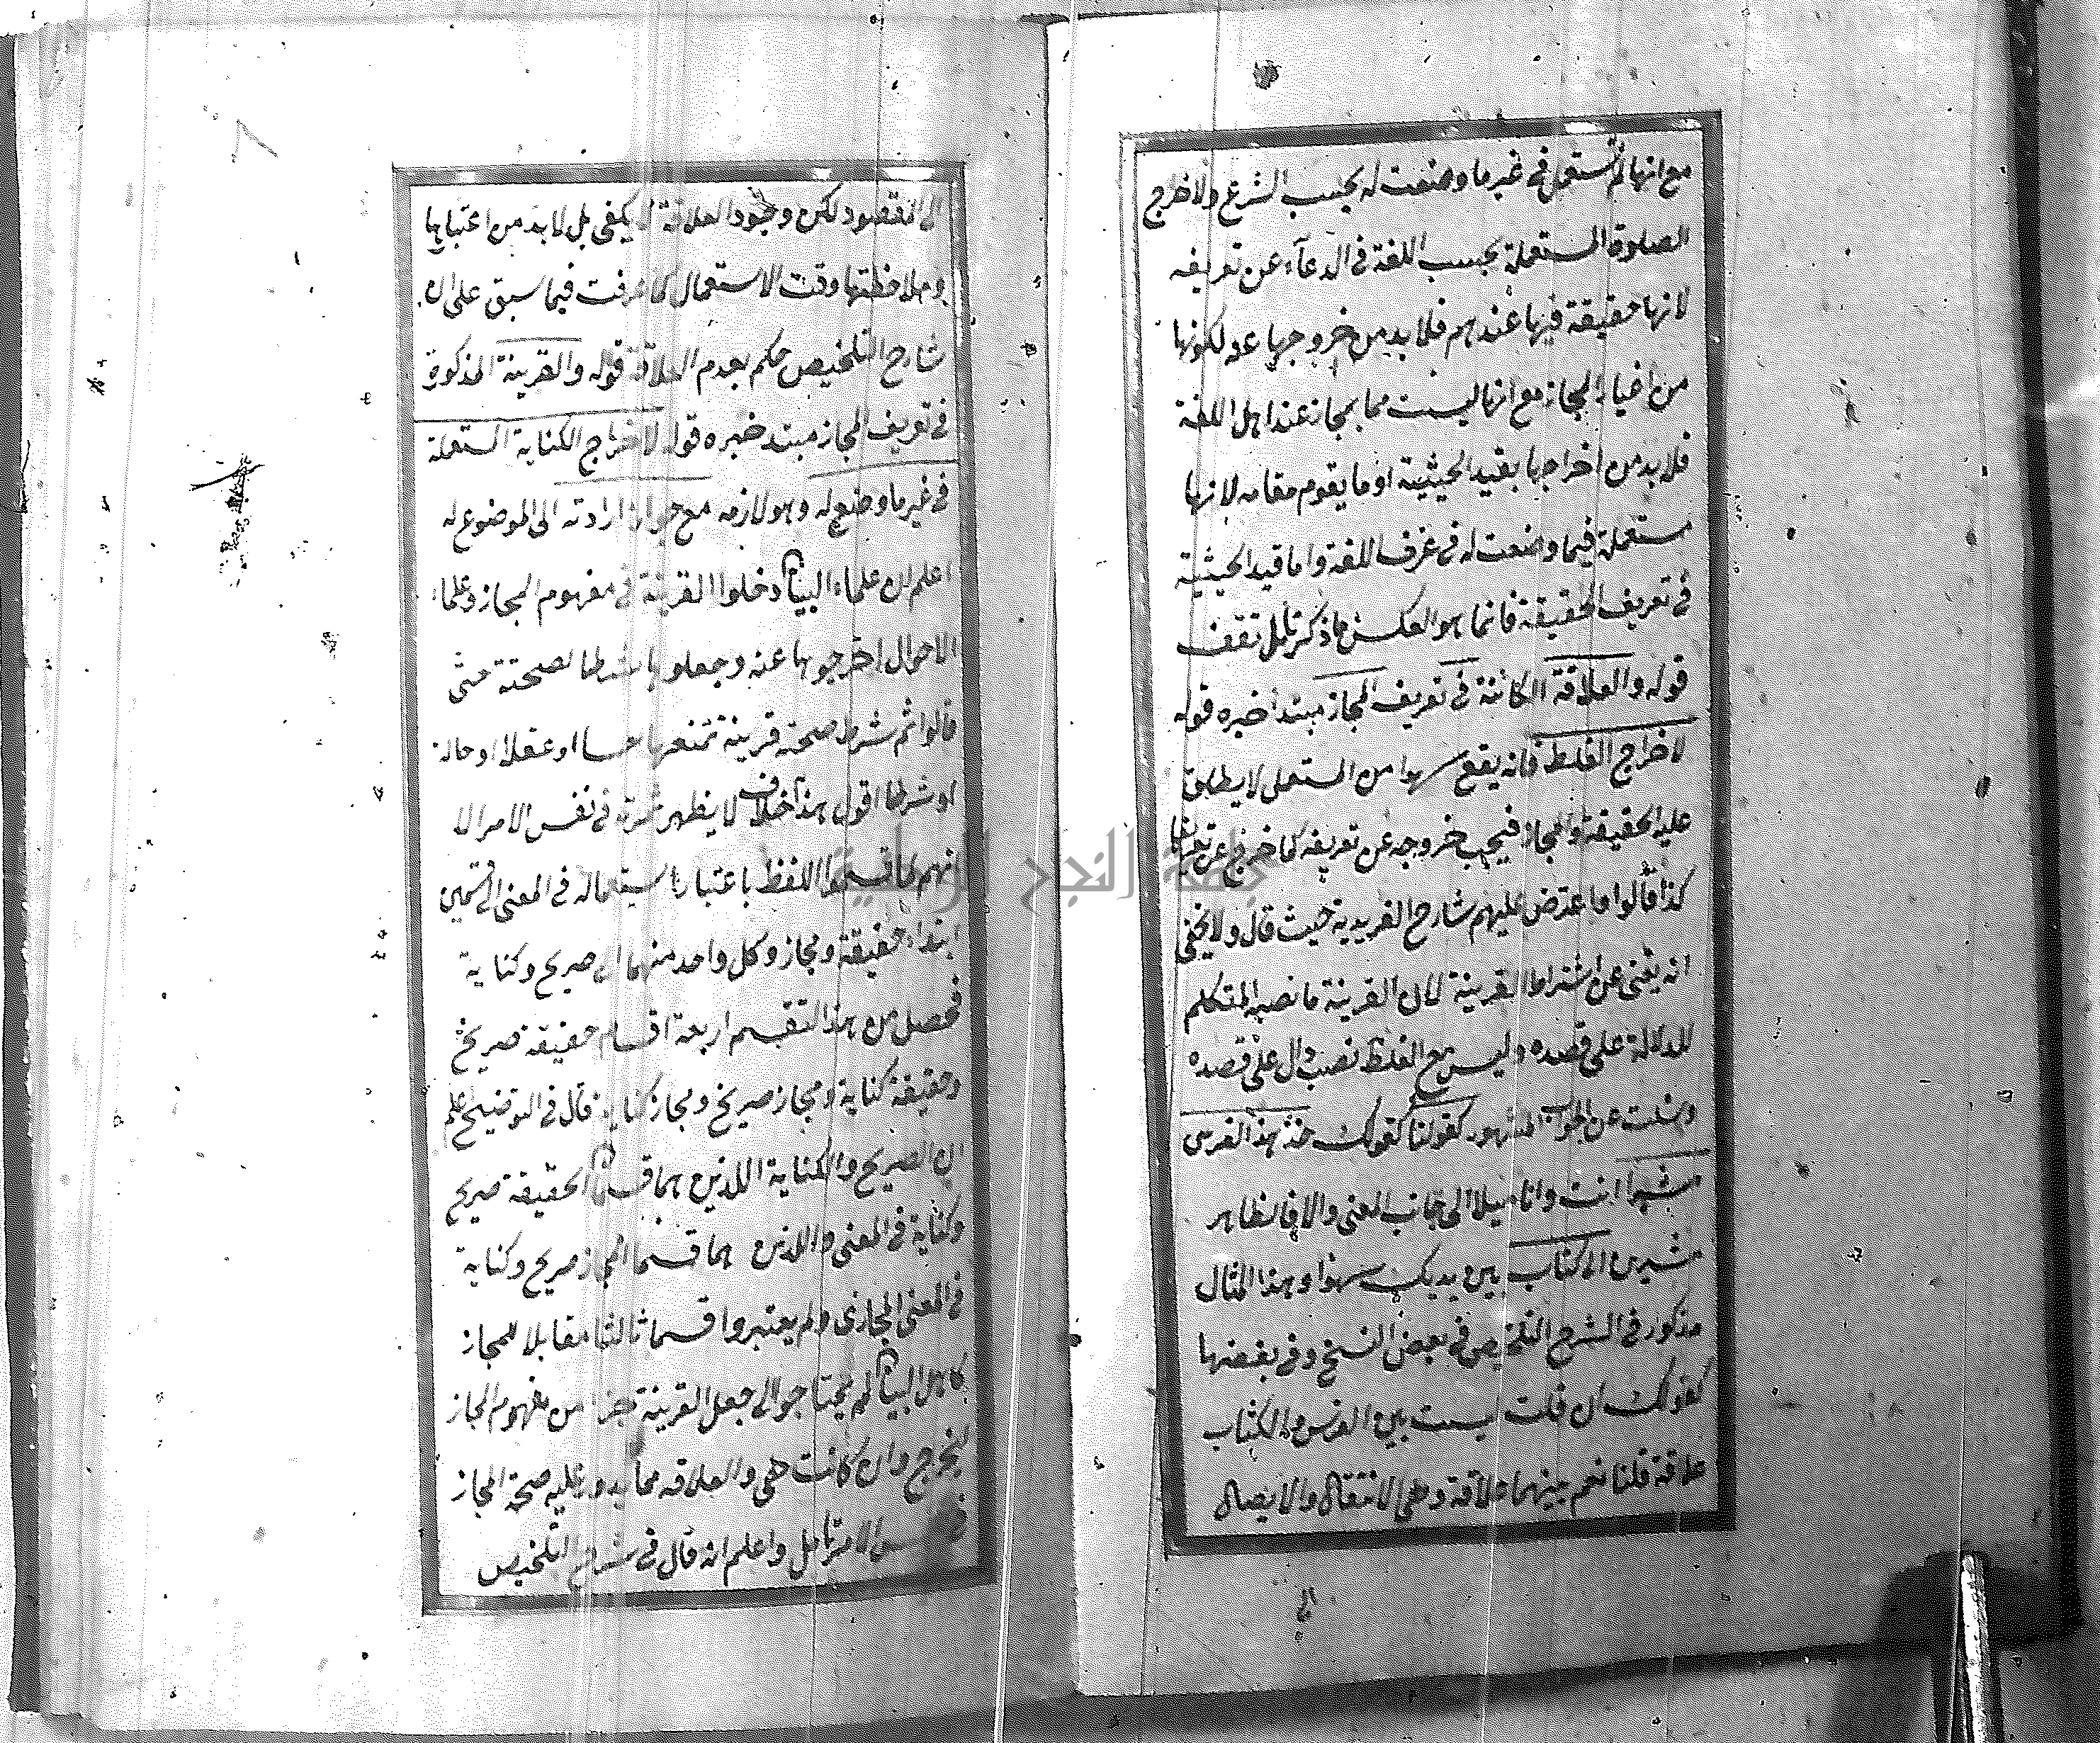 مع انها لم تستعمل في غير ما وضعت له بحسب الشرع ولاخراج
الصلوة المستعملة بحسب اللغة في الدعآء عن تعريفه
لانها حقيقة فيها عندهم فلا بد من خروجها عنه لكونها
من اغيار المجاز مع انها ليست مما بمجاز عند اهل اللغة
فلا بد من اخراجها بقيد الحيثية او ما يقوم مقامه لانها
مستعملة فيما وضعت له في عرف اللغة واما قيد الحيثية
في تعريف الحقيقة فانما هو العكس ما ذكر تأمل تقف
قوله والعلاقة الكائنة في تعريف المجاز مبتدأ خبره قوله
لاخراج الغلط فانه يقع سهوا من المستعمل لا يطلق
عليه الحقيقة والمجاز فيجب خروجه عن تعريفه كما خرج عن تعريفها
كذا قالوا واعترض عليهم شارح الفريدية حيث قال ولا يخفى
انه يغنى عن اشتراط القرينة لان القرينة ما نصبه المتكلم
للدلالة على قصده وليس مع الغلط نصب دال على قصده
وسكت عن الجواب المشهور كقولنا كقولك خذ هذا الفرس
مشيرا انت وانا ميلا الى جانب المعنى والا فالظاهر
مشيرين الى كتاب بين يديك سهوا وهذا المثال
مذكور في الشرح التلخيص في بعض النسخ وفي بعضها
كقولك ان قلت ليست بين الفرس والكتاب
علاقة قلنا نعم بينهما علاقة وهي الانتقال والايصال
الى
الى المقصود لكن وجود العلاقة لا يكفى بل لا بد من اعتبارها
وملاحظتها وقت الاستعمال كما عرفت فيما سبق على ان
شارح التلخيص حكم بعدم العلاقة قوله والقرينة المذكورة
في تعريف المجاز مبتدأ خبره قوله لاخراج الكناية المستعملة
في غير ما وضع له وهو لازمه مع جواز ارادته الى الموضوع له
اعلم ان علماء البيان ادخلوا القرينة في مفهوم المجاز وعلماء
الاصول اخرجوها عنه وجعلوها شرطا لصحته حتى
قالوا ثم شرط صحته قرينة تمنعها حسا او عقلا او حالة
او شرطا اقول هذا خلاف لا يظهر ثمرته في نفس الامر الا
انهم لما قسموا اللفظ باعتبار استعماله في المعنى الى قسمين
ابتداء حقيقة ومجاز وكل واحد منهما الى صريح وكناية
فحصل من هذا التقسيم اربعة اقسام حقيقة صريح
وحقيقة كناية ومجاز صريح ومجاز كناية قال في التوضيح اعلم
ان الصريح والكناية اللذين هما قسما الحقيقة صريح
وكناية في المعنى واللذين هما قسما المجاز صريح وكناية
في المعنى المجازى ولم يعتبروا قسما ثالثا مقابلا للمجاز
كاهل البيان لم يحتاجوا الى جعل القرينة جزا من مفهوم المجاز
ليخرج وان كانت هي والعلاقة مما يدور عليه صحة المجاز
في نفس الامر تأمل واعلم انه قال في شرح التلخيص